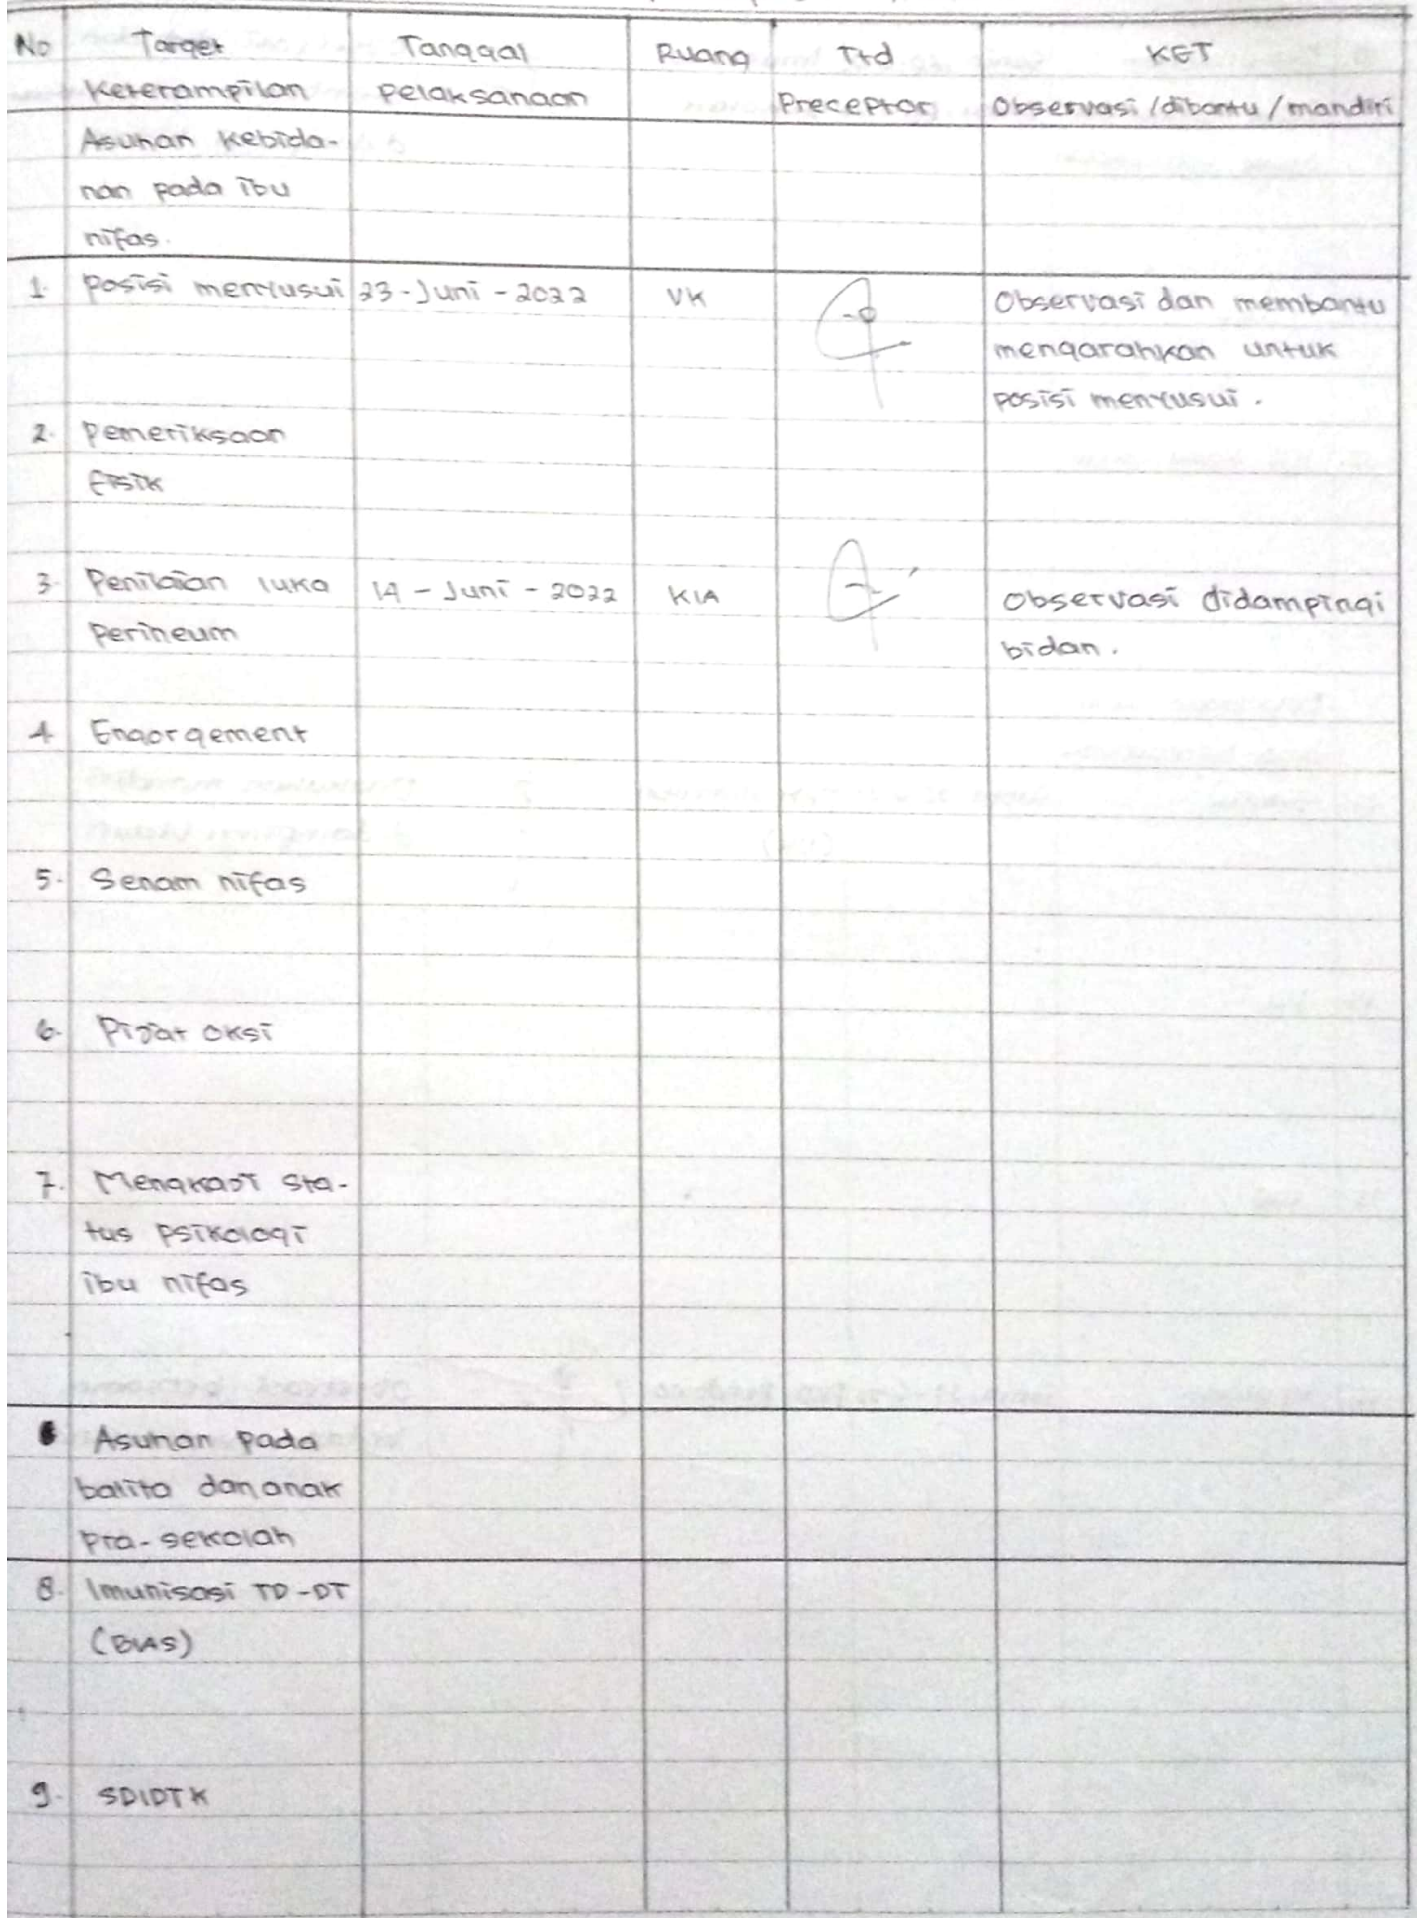 No Target Tanggal Ruang Ttd KET
Keterampilan Pelaksanaan Preceptor Observasi / dibantu / mandiri
Asuhan Kebida-
nan pada ibu
nifas.
1. Posisi menyusui 23 - Juni - 2022 VK Observasi dan membantu
mengarahkan untuk
posisi menyusui.
2. Pemeriksaan
fisik
3. Penilaian luka 14 - Juni - 2022 KIA Observasi didampingi
perineum bidan.
4 Engorgement
5. Senam nifas
6. Pijat oksi
7. Mengkaji sta-
tus psikologi
ibu nifas
Asuhan pada
balita dan anak
Pra-sekolah
8. Imunisasi TD-DT
(BIAS)
9. SDIDTK